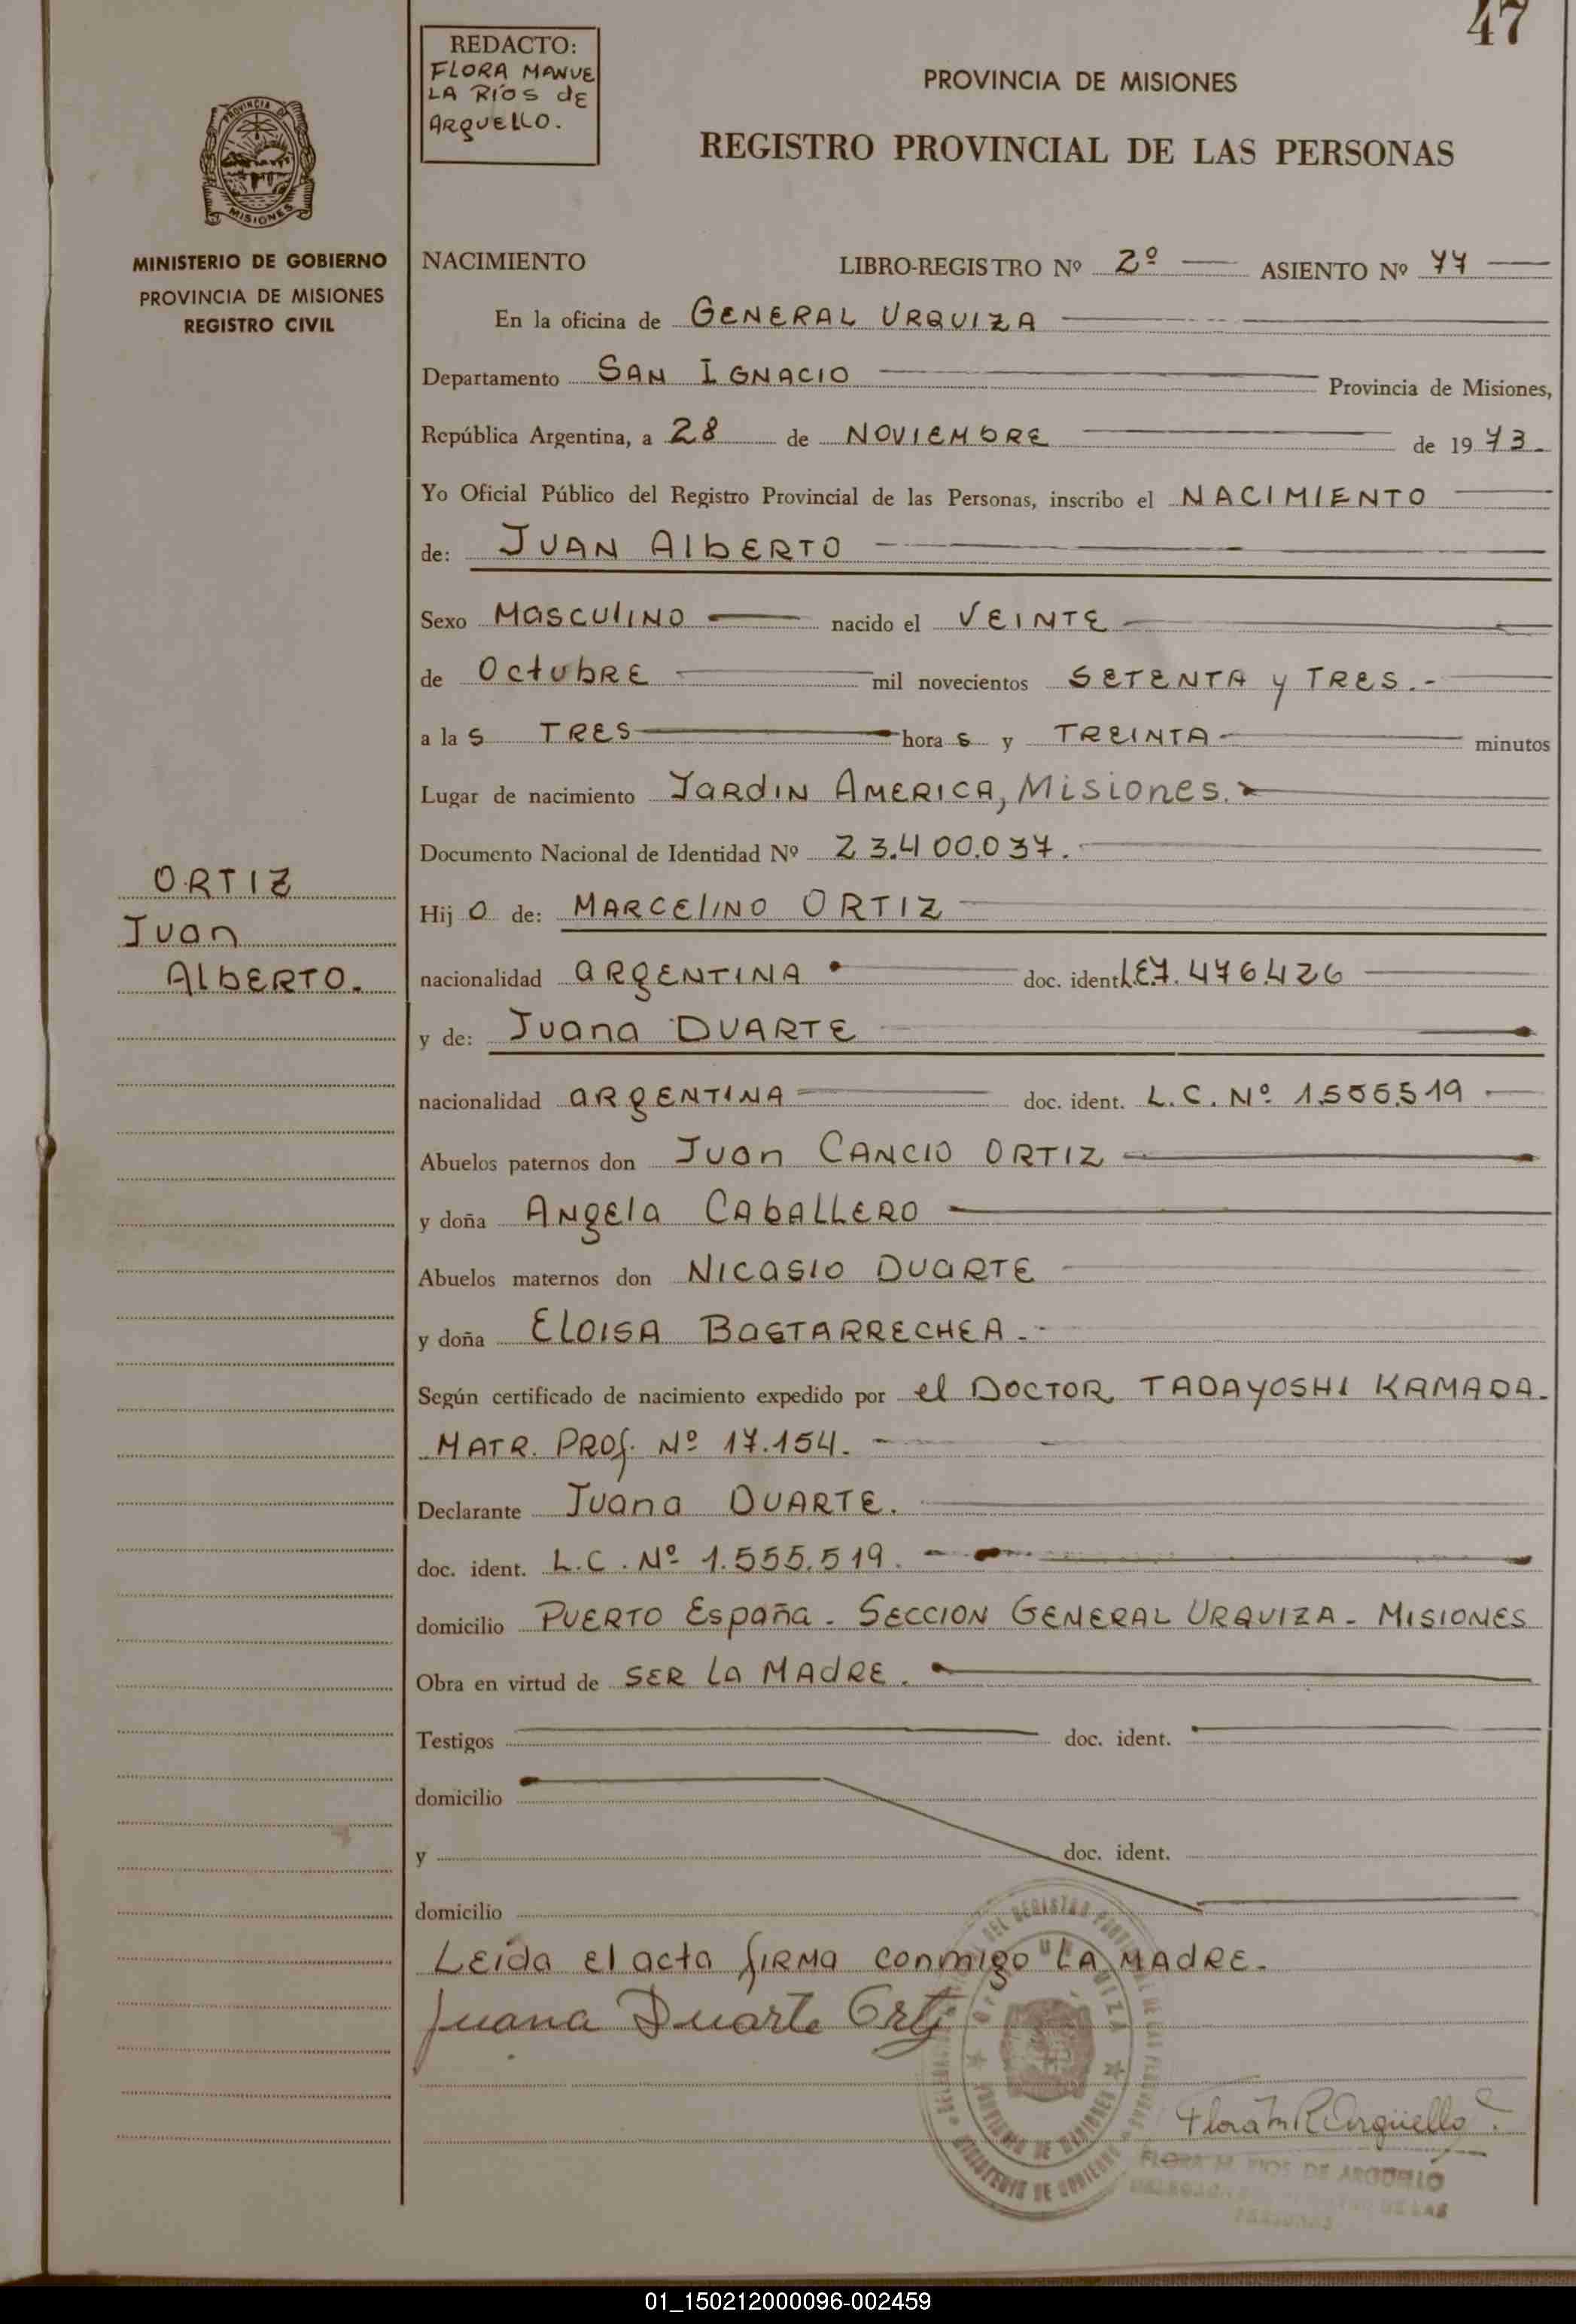 47
REDACTO:
FLORA MANUE
LA RIOS dE
ARGUELLO.
PROVINCIA DE MISIONES
REGISTRO PROVINCIAL DE LAS PERSONAS
PROVINCIA DE
MISIONES
MINISTERIO DE GOBIERNO
PROVINCIA DE MISIONES
REGISTRO CIVIL
NACIMIENTO LIBRO-REGISTRO Nº 2º ASIENTO Nº 77
En la oficina de GENERAL URQUIZA
Departamento SAN IGNACIO Provincia de Misiones,
República Argentina, a 28 de NOVIEMbRE de 1973.
Yo Oficial Público del Registro Provincial de las Personas, inscribo el NACIMIENTO
de: JUAN AlbERTO
Sexo MasculINO nacido el VEINTE
de OctubRE mil novecientos SETENTA y TRES.-
a las TRES horas y TREINTA minutos
Lugar de nacimiento JaRdIN AMERICA, Misiones.
Documento Nacional de Identidad Nº 23.400.037.
ORTIZ
Juan
AlbERTO.
Hijo de: MARCElINO ORTIZ
nacionalidad aRgENTINA doc. ident L.E.7.476.426
y de: Juana DUARTE
nacionalidad aRgENTINA doc. ident. L.C. Nº 1.555.519
Abuelos paternos don Juan CANCIO ORTIZ
y doña ANgEla CAbALLERO
Abuelos maternos don NICaSIO DUaRTE
y doña ELOISA BaSTARRECHEA.-
Según certificado de nacimiento expedido por el DOCTOR TADAYOSHI KAMADA.
MATR. PROf. Nº 17.154.-
Declarante Juana DUARTE.
doc. ident. L.C. Nº 1.555.519.-
domicilio PUERTO España - SECCION GENERAL URQUIZA - MISIONES
Obra en virtud de SER LA MAdRE.
Testigos doc. ident.
domicilio
y doc. ident.
domicilio
LEida El acta fIRMa conmigo LA MAdRE.
Juana Duarte Orti
Flora M R Argüello
FLORA M. RIOS DE ARGUELLO
01_150212000096-002459